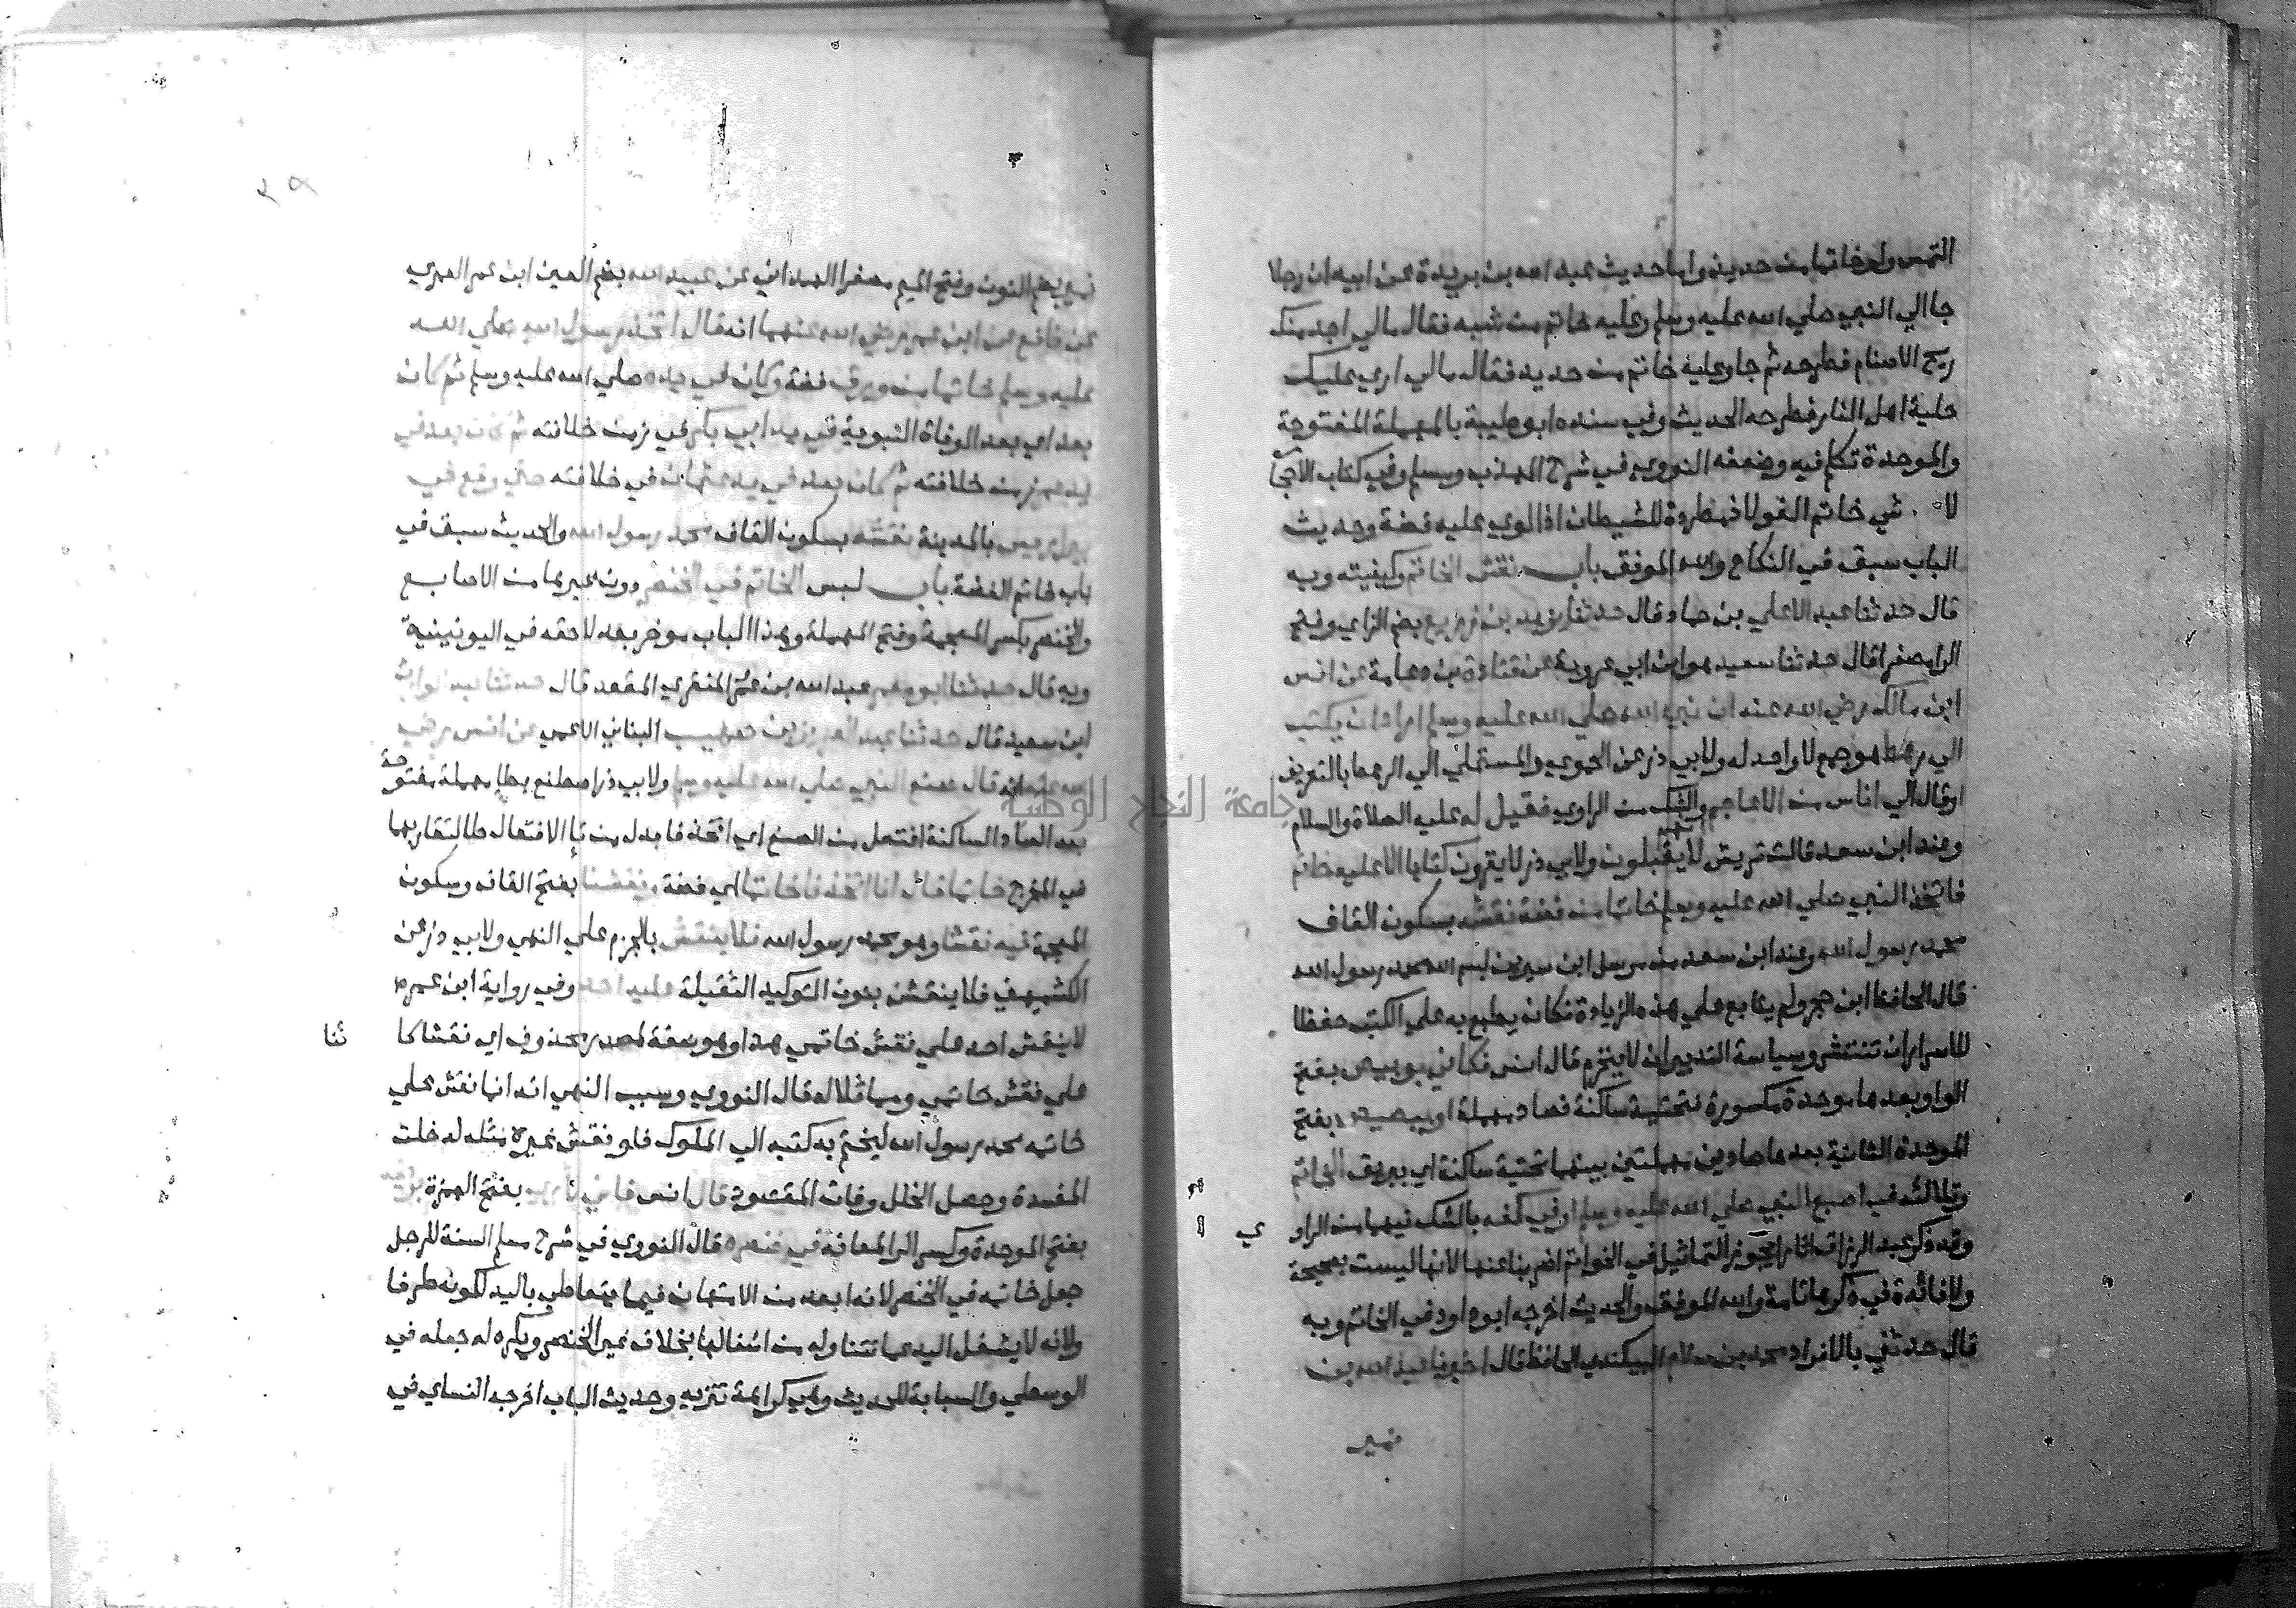 التمس ولو خاتما من حديد واما حديث عبد الله بن بريدة عن ابيه ان رجلا
جا الي النبي صلي الله عليه وسلم وعليه خاتم من شبه فقال مالي اجد منك
ريح الاصنام فطرحه ثم جا وعليه خاتم من حديد فقال مالي اري عليك
حلية اهل النار فطرحه الحديث وفي سنده ابو طيبة بالمهملة المفتوحة
والموحدة تكلم فيه وضعفه النووي في شرح المهذب ومسلم وفي كتاب الاحجار
لا شي خاتم الفولاذ مطردة للشيطان اذا لوي عليه فضة وحديث
الباب سبق في النكاح والله الموفق باب نقش الخاتم وكيفيته وبه
قال حدثنا عبد الاعلي بن حماد قال حدثنا يزيد بن زريع بضم الزاي وفتح
الرا مصغرا قال حدثنا سعيد هو ابن ابي عروبة عن قتادة بن دعامة عن انس
ابن مالك رضي الله عنه ان نبي الله صلي الله عليه وسلم اراد ان يكتب
الي رهط هو جمع لا واحد له ولابي ذر عن الحموي والمستملي الي الرهط بالتعريف
او قال الي اناس من الاعاجم والشك من الراوي فقيل له عليه الصلاة والسلام
وعند ابن سعد قالت قريش انهم لا يقبلون ولابي ذر لا يقرون كتابا الا عليه خاتم
فاتخذ النبي صلي الله عليه وسلم خاتما من فضة نقشه بسكون القاف
محمد رسول الله وعند ابن سعد من مرسل ابن سيرين بسم الله محمد رسول الله
قال الحافظ ابن حجر ولم يتابع علي هذه الزيادة فكان يطبع به علي الكتب حفظا
للاسرار ان تنتشر وسياسة التدبير ان لا يتخرم قال انس فكاني بوبيص بفتح
الواو بعدها موحدة مكسورة فتحتية ساكنة فصاد مهملة او ببصيص بفتح
الموحدة الثانية بعدها صادين مهملتين بينهما تحتية ساكنة اي ببريق الخاتم
وتلالئه في اصبع النبي صلي الله عليه وسلم او في كفه بالشك فيهما من الراوي
وقد ذكر عبد الرزاق اثارا بجوز التماثيل في الخواتم اضربنا عنها لانها ليست بصحيحة
ولا فائدة في ذكرها تامة والله الموفق والحديث اخرجه ابو داود في الخاتم وبه
قال حدثني بالافراد محمد بن سلام البيكندي الحافظ قال اخبرنا عبد الله بن
نمير
نمير بضم النون وفتح الميم مصغرا الهمداني عن عبيد الله بضم العين ابن عمر العمري
عن نافع عن ابن عمر رضي الله عنهما انه قال اتخذ رسول الله صلي الله
عليه وسلم خاتما من ورق فضة وكان في يده صلي الله عليه وسلم ثم كان
بعد اي بعد الوفاة النبوية في يد ابي بكر في زمن خلافته ثم كان بعد في
يد عمر زمن خلافته ثم كان بعد في يد عثمان في خلافته حتي وقع في
بير اريس بالمدينة نقشه بسكون القاف محمد رسول الله والحديث سبق في
باب خاتم الفضة باب لبس الخاتم في الخنصر دون غيرها من الاصابع
والخنصر بكسر المعجمة وفتح المهملة وهذا الباب موخر بعد لاحقه في اليونينية
وبه قال حدثنا ابو معمر عبد الله بن عمرو المنقري المقعد قال حدثنا عبد الوارث
ابن سعيد قال حدثنا عبد العزيز بن صهيب البناني الاعمي عن انس رضي
الله عنه انه قال صنع النبي صلي الله عليه وسلم ولابي ذر اصطنع بطا مهملة مفتوحة
بعد الصاد الساكنة افتعل من الصنع اي اتخذ فابدل من تا الافتعال طا لتقاربهما
في المخرج خاتما قال انا اتخذنا خاتما اي فضة ونقشنا بفتح القاف وسكون
المعجمة فيه نقشا وهو محمد رسول الله فلا ينقش بالجزم علي النهي ولابي ذر عن
الكشميهني فلا ينقشن بنون التوكيد الثقيلة عليه احد وفي رواية ابن عمر
لا ينقش احد علي نقش خاتمي هذا وهو صفة لمصدر محذوف اي نقشا كائنا
علي نقش خاتمي ومماثلا له قال النووي وسبب النهي انه انما نقش علي
خاتمه محمد رسول الله ليختم به كتبه الي الملوك فلو نقش غيره مثله لدخلت
المفسدة وحصل الخلل وفات المقصود قال انس فاني لاري بفتح الهمزة بريقه
بفتح الموحدة وكسر الرا لمعانه في خنصره قال النووي في شرح مسلم السنة للرجل
جعل خاتمه في الخنصر لانه ابعد من الامتهان فيما يتعاطي باليد لكونه طرفا
ولانه لا يشغل اليد عما تتناوله من اشغالها بخلاف غير الخنصر ويكره له جعله في
الوسطي والسبابة للحديث وهي كراهة تنزيه وحديث الباب اخرجه النساي في
جامعة النجاح الوطنية